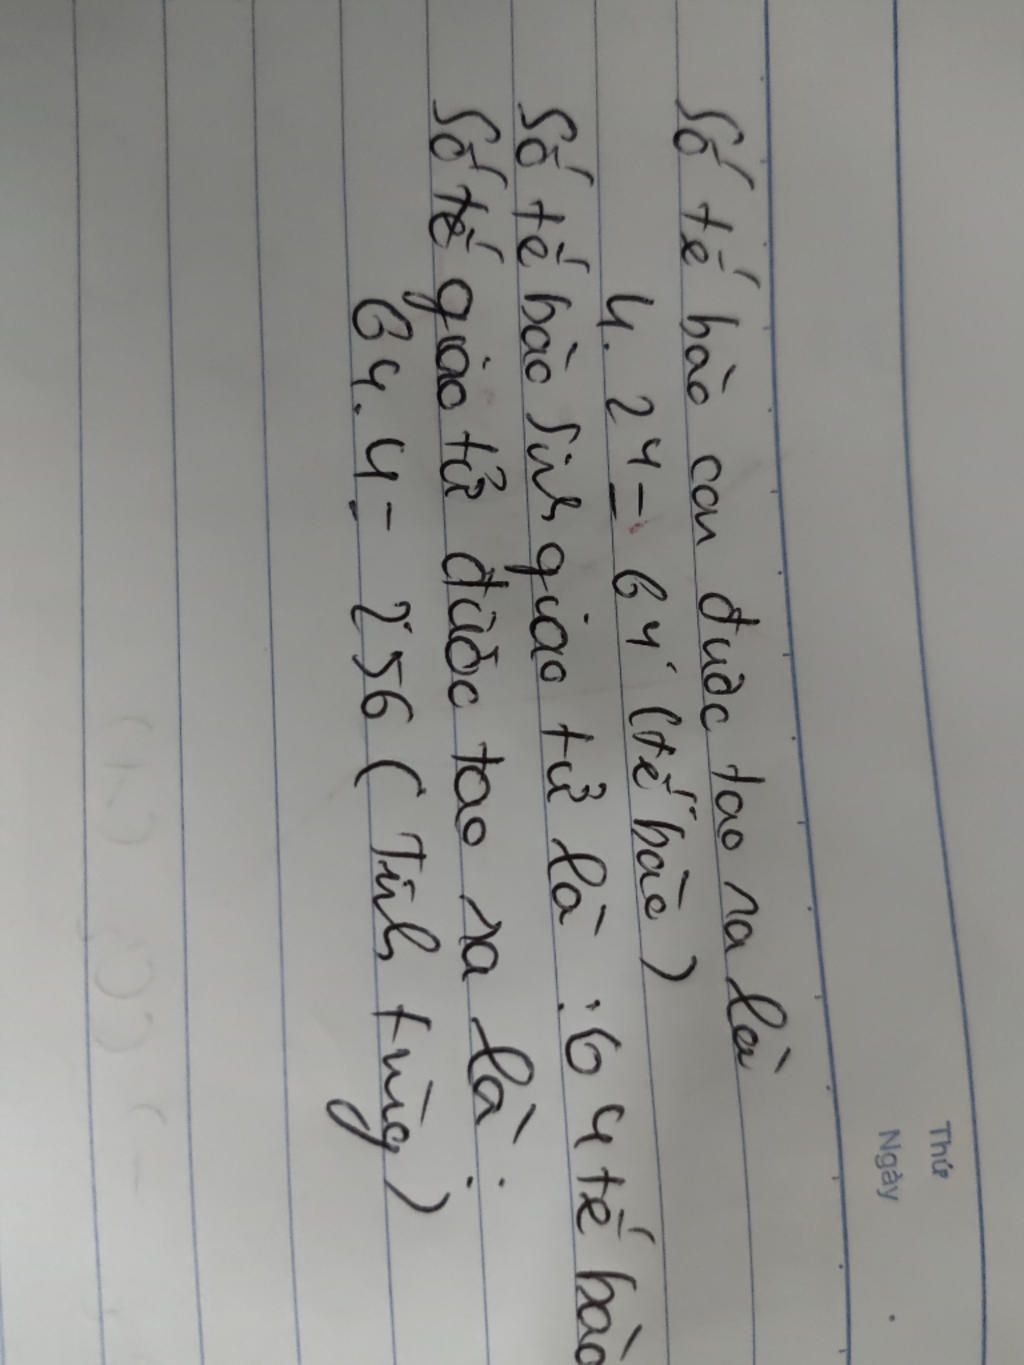 Thứ
Ngày
Số tế bào con được tao ra là
4. 2⁴ = 64 (tế bào)
Số tế bào sinh giao tử là : 64 tế bào
Số tế giao tử được tao ra là :
64. 4 = 256 ( Tinh trùng )